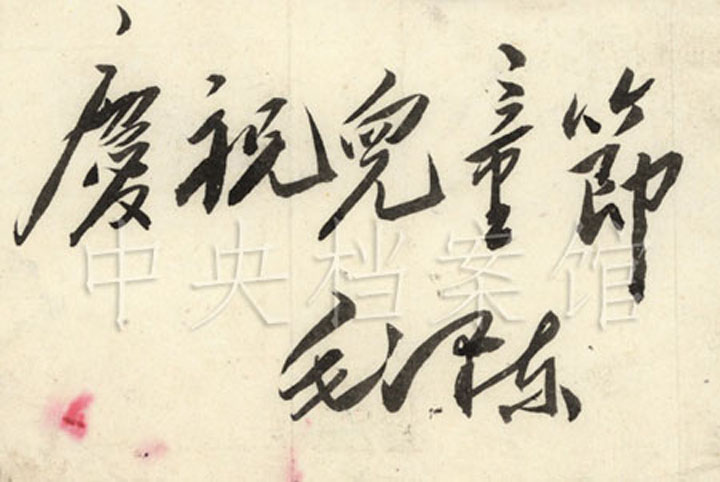 慶祝兒童節
中央档案馆
毛泽东